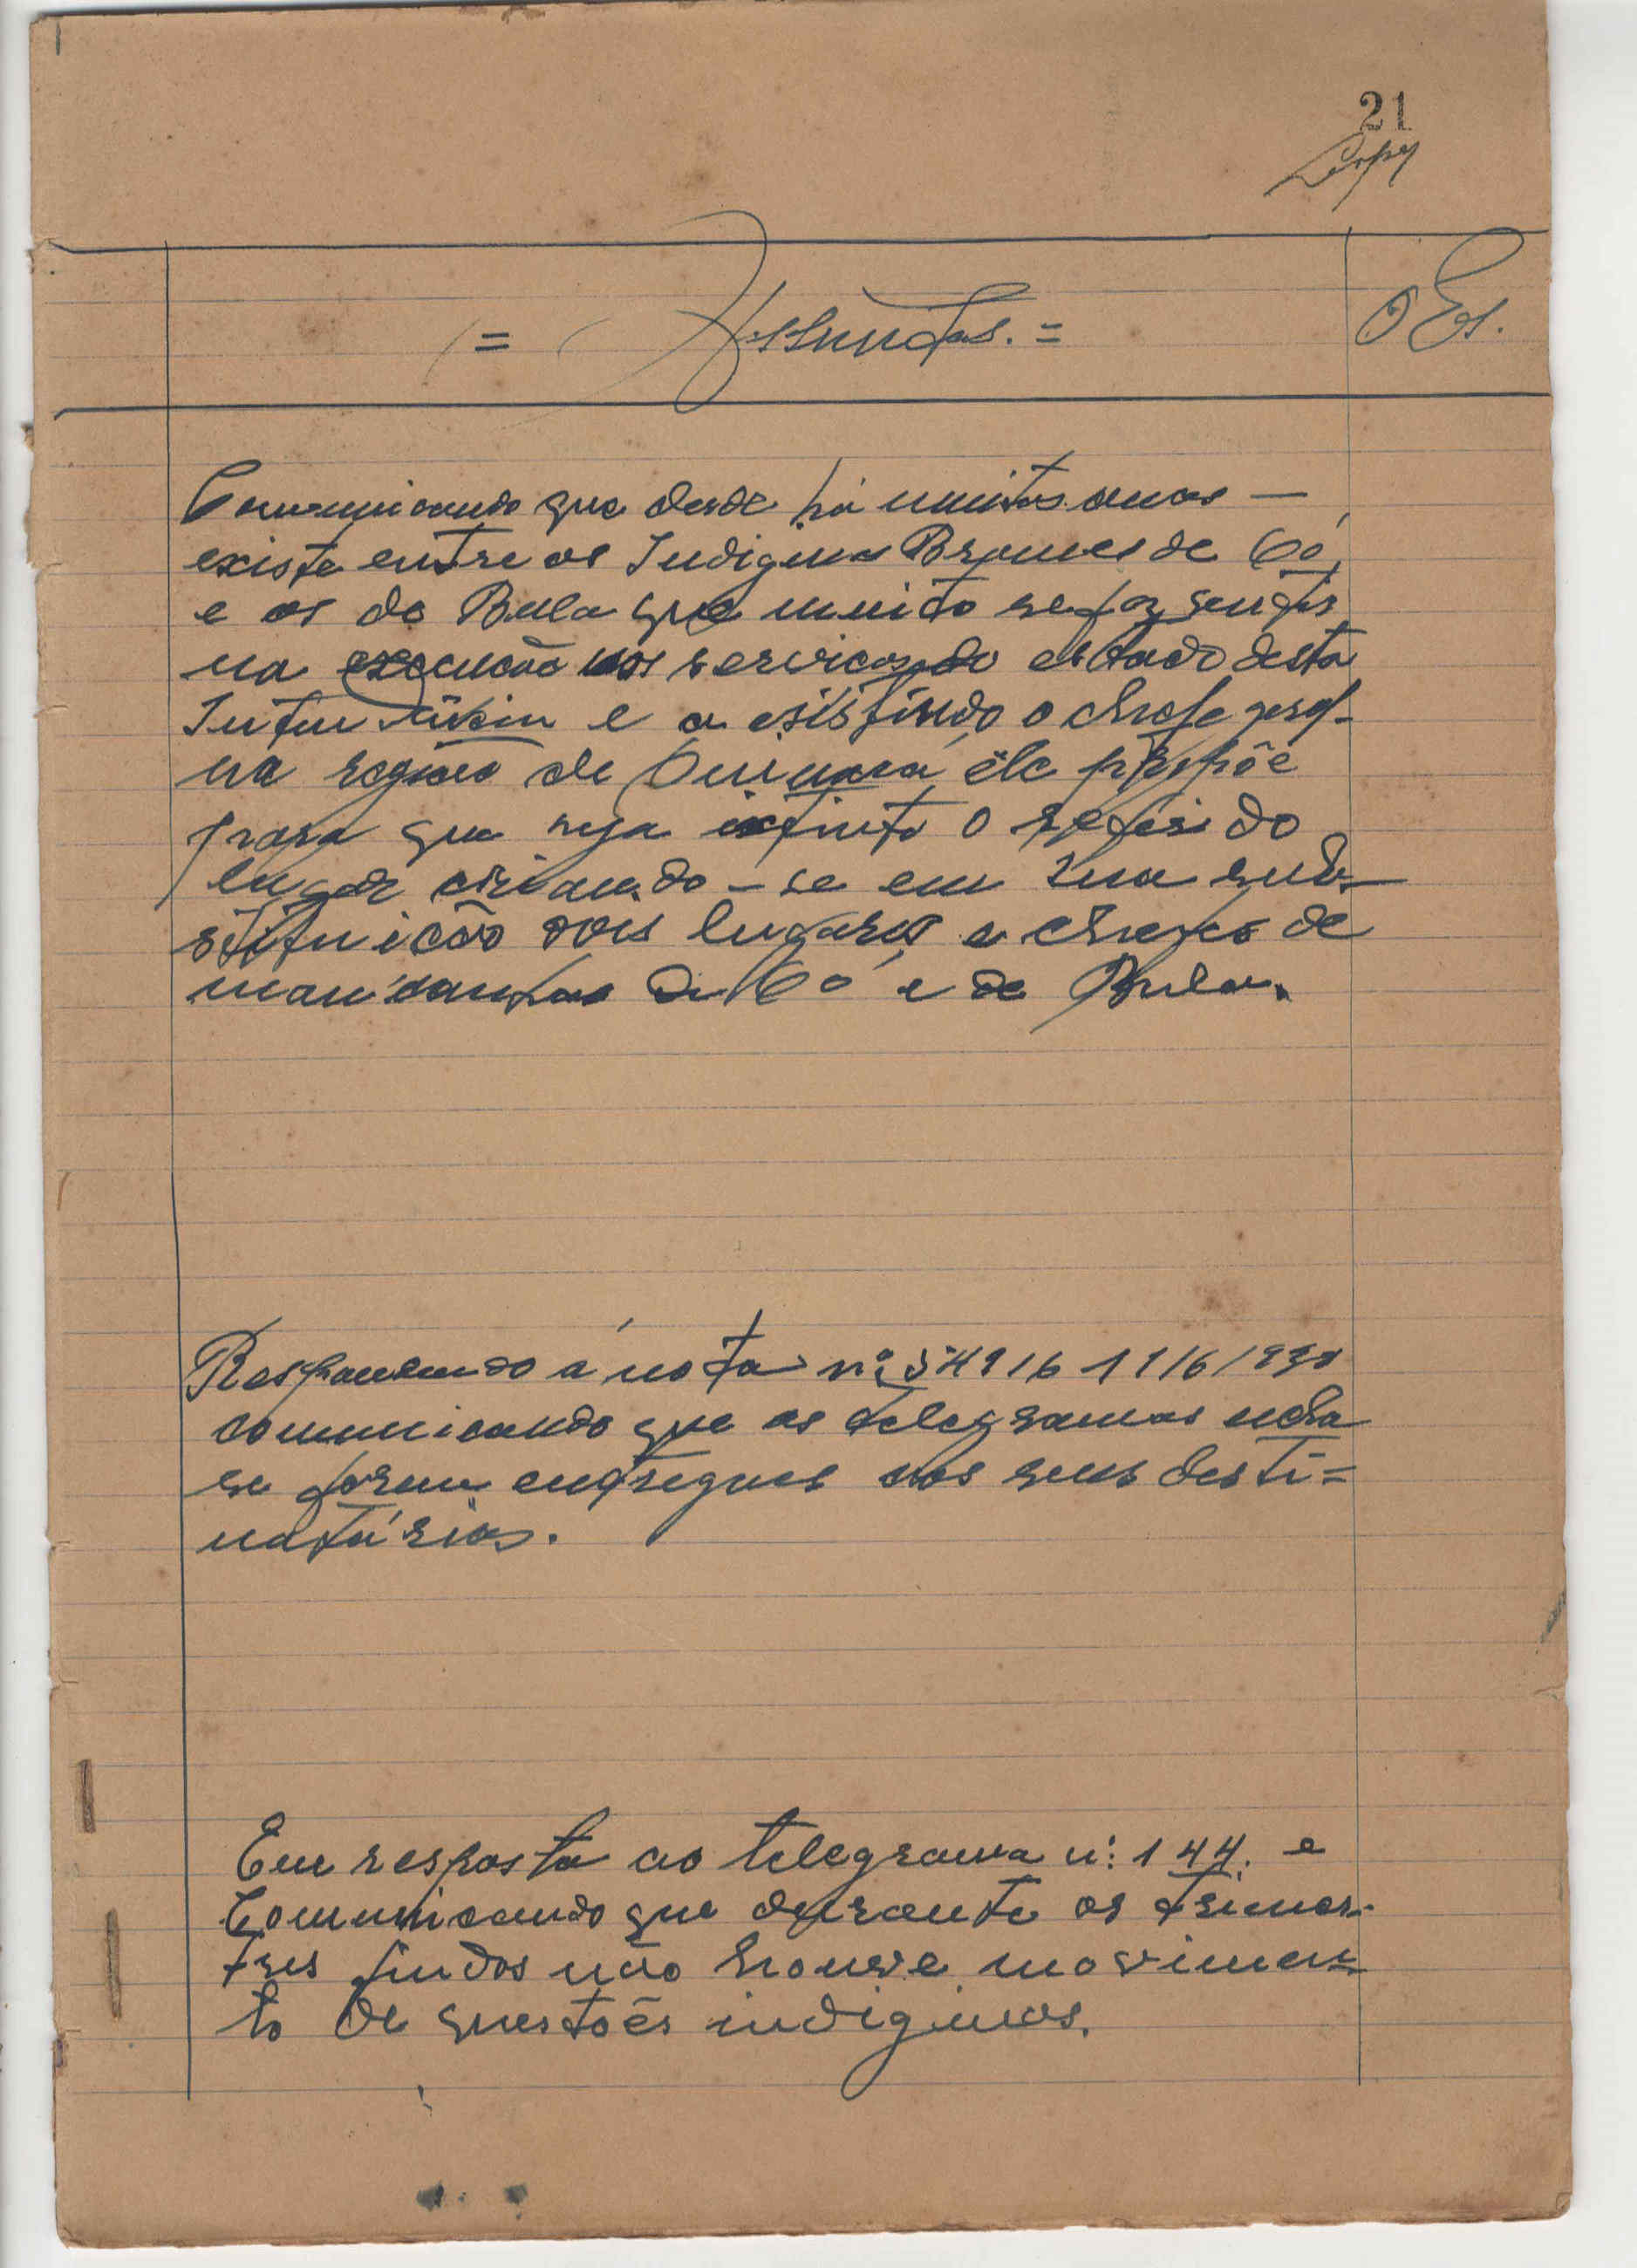 21
= Assuntos. =
Comunicando que desde há muitos anos —
existe entre os Indigenas Brames de Có
e os de Bula que muito se faz sentir
na execução nos serviços do estado desta
e a o chefe
na região de ele propõe
para que seja extinto o referido
lugar criando-se em sua sub-
stituicão dois lugares a chefes de
de Có e de Bula.
Respondendo á nota nº
comunicando que os telegramas
foram entregues aos seus desti=
natários.
Em resposta ao telegrama nº: 144. e
Comunicando que durante os trimes-
tres findos não houve movimen=
to de questões indiginas.